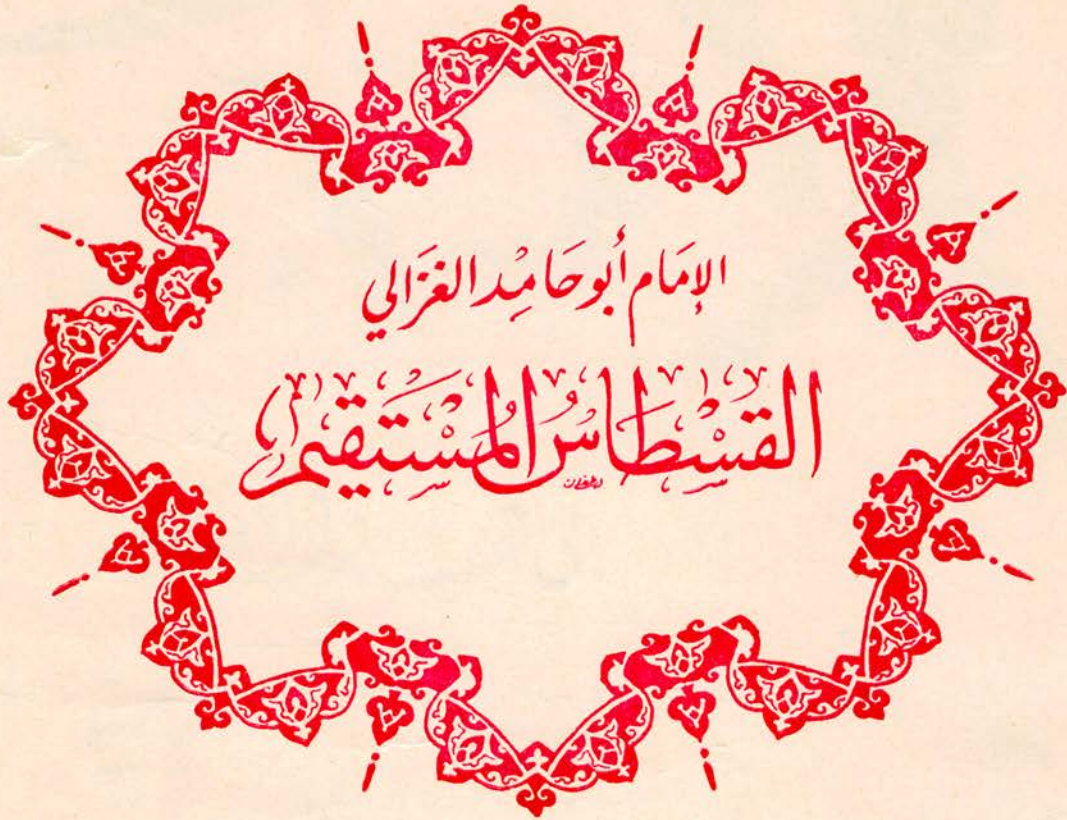 الإمَام أبو حَامِد الغزَالي
القسْطاسُ المُسْتقيم